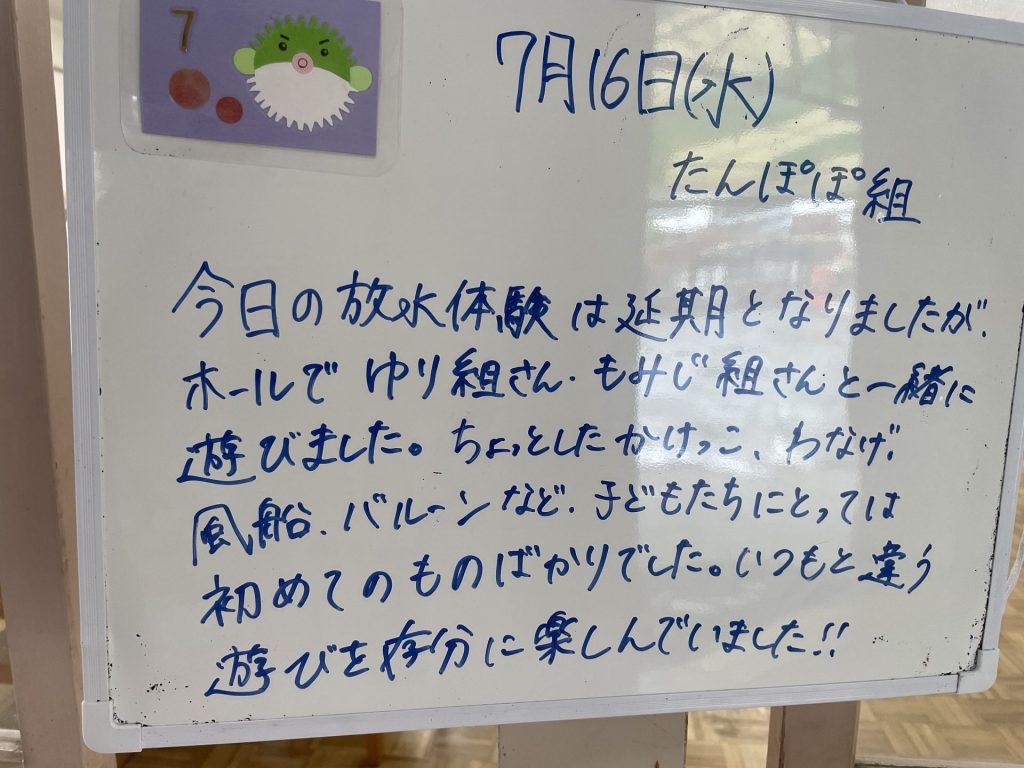 7
7月16日(水)
たんぽぽ組
今日の放水体験は延期となりましたが、
ホールでゆり組さん、もみじ組さんと一緒に
遊びました。ちょっとしたかけっこ、わなげ、
風船、バルーンなど、子どもたちにとっては
初めてのものばかりでした。いつもと違う
遊びを存分に楽しんでいました!!